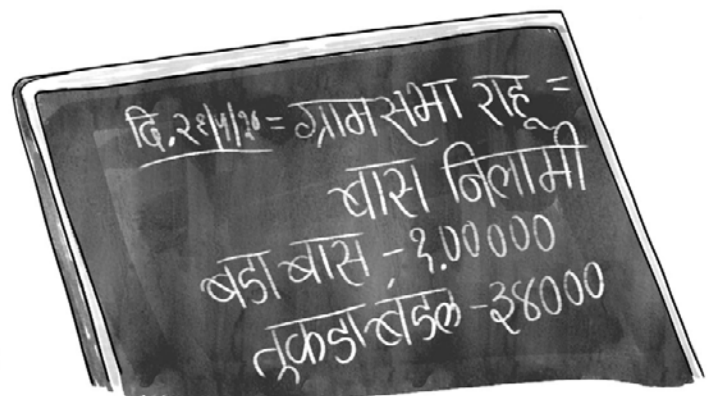 दि.२१/५/२० = ग्रामसभा राहू =
बास निलामी
बडा बास - १.०००००
तुकडा बंडल - ३४०००